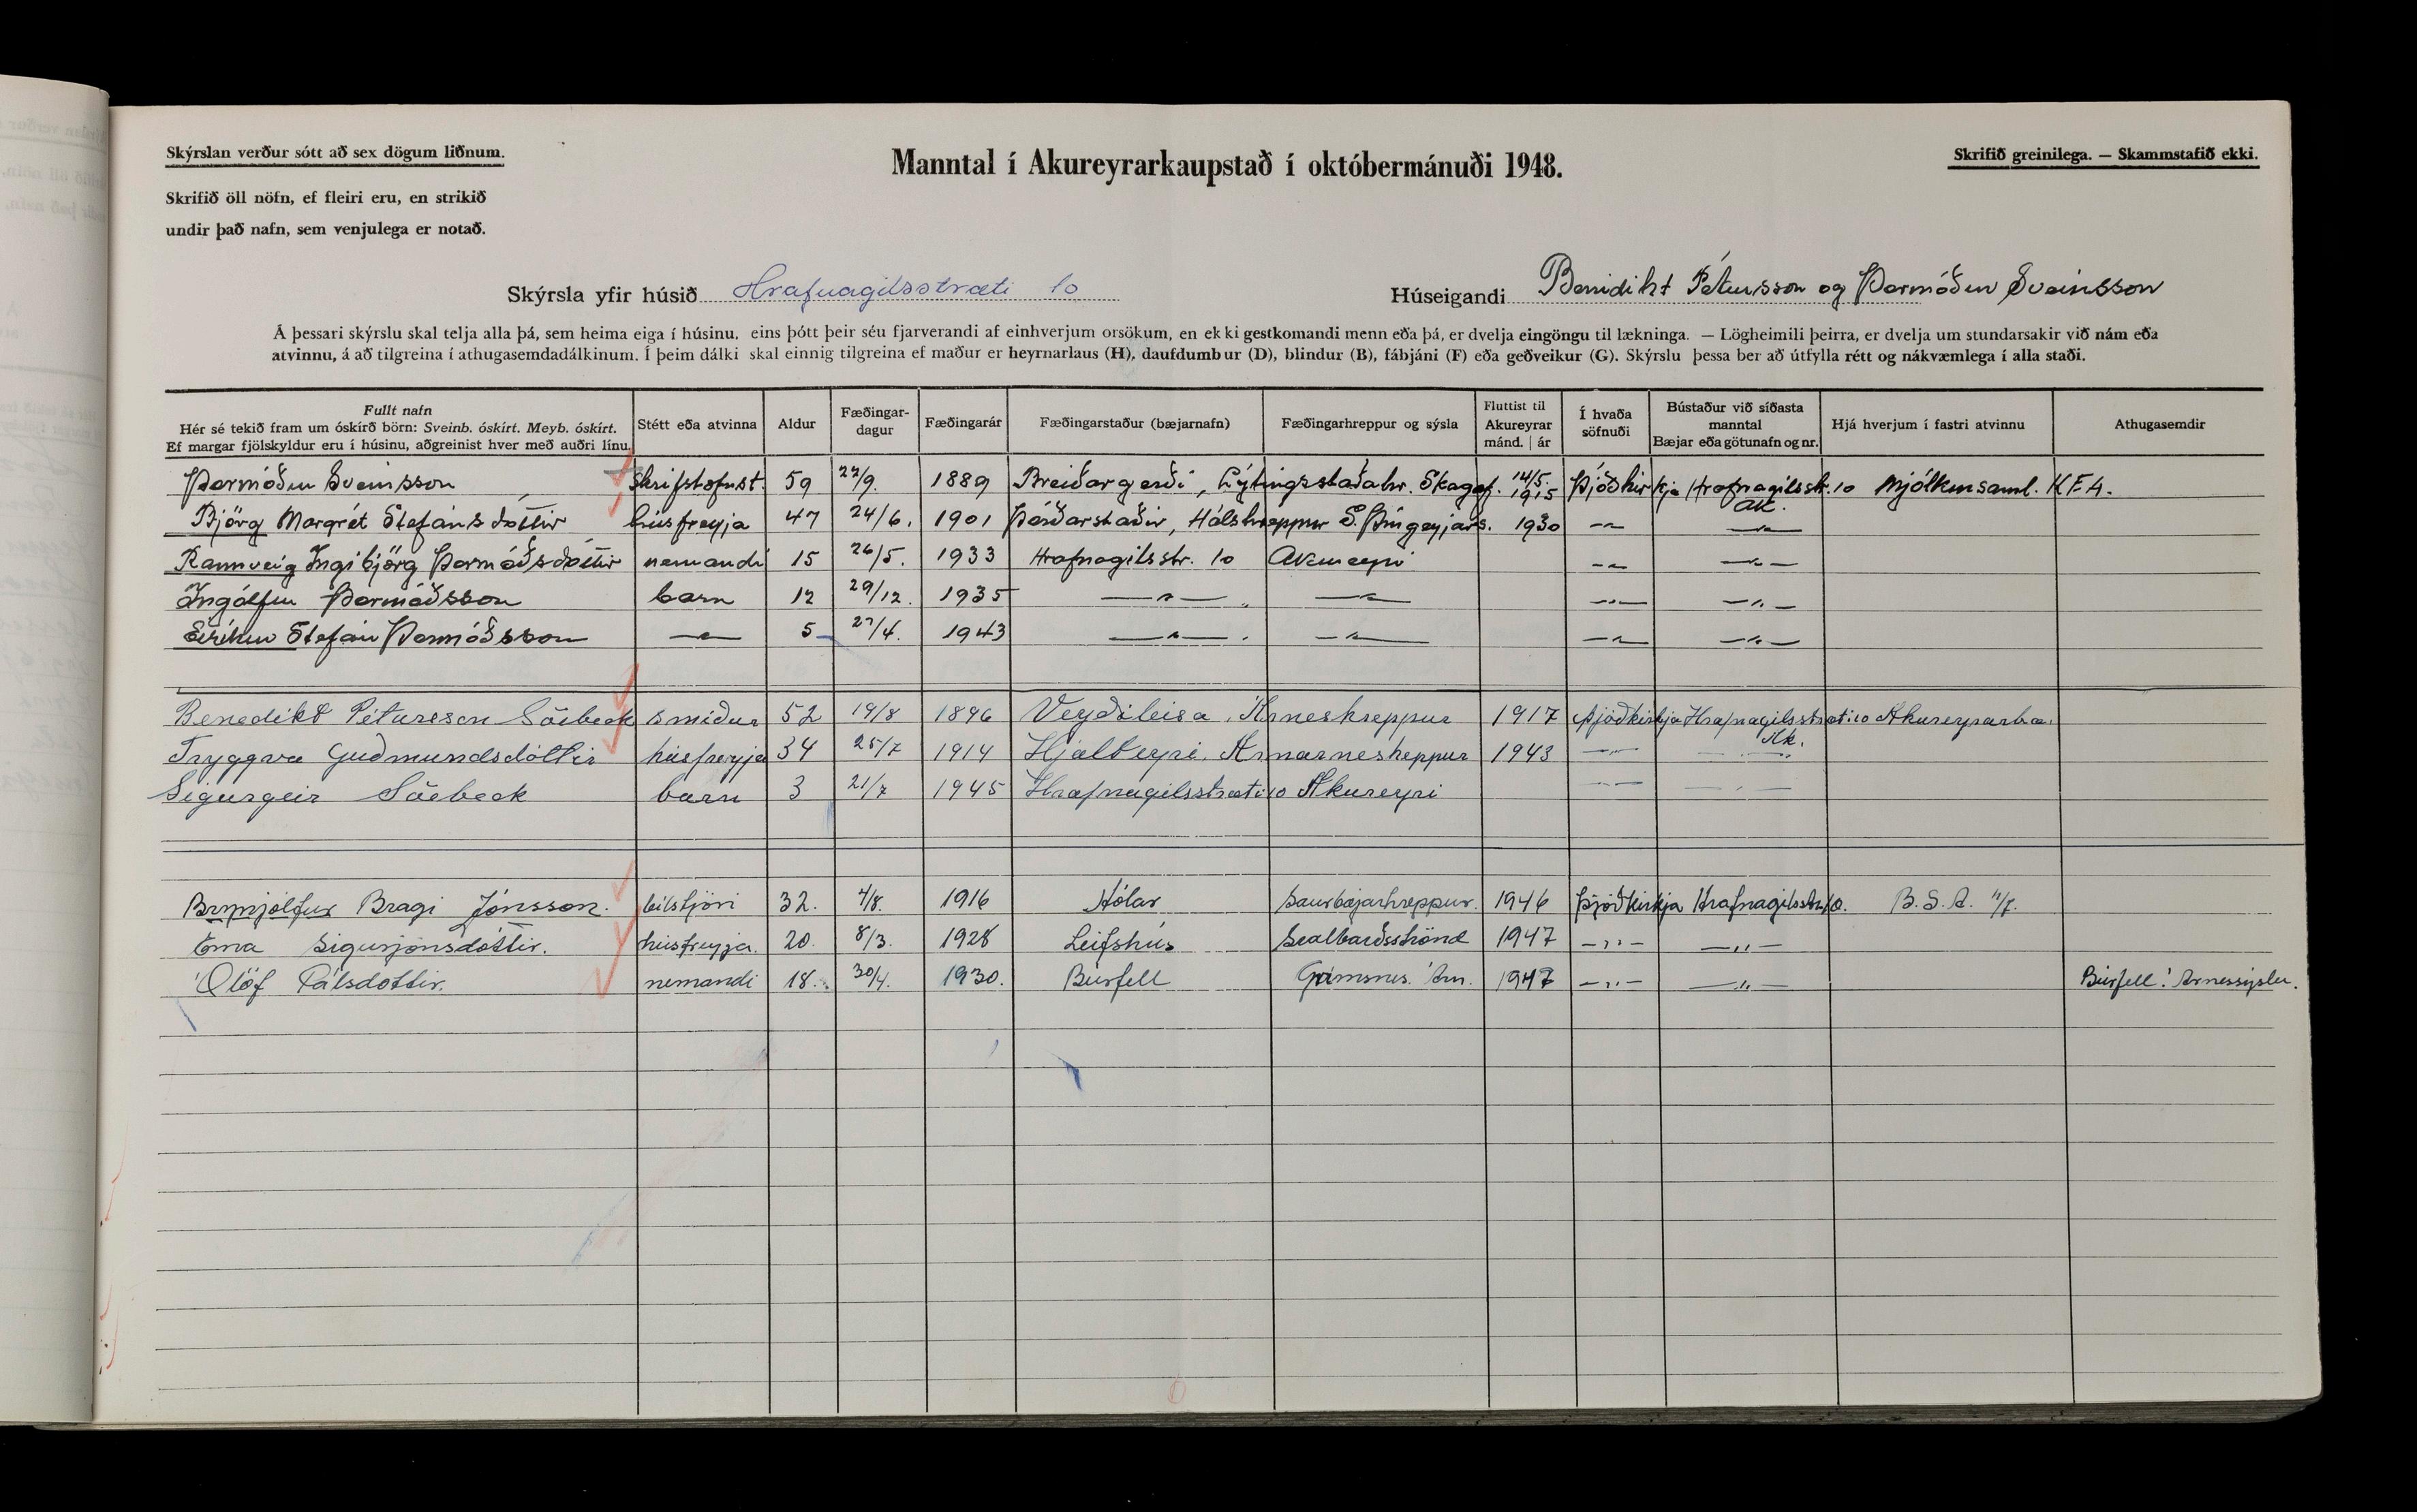 Skýrslan verður sótt að sex dögum liðnum.
Manntal í Akureyrarkaupstað í októbermánuði 1948.
Skrifið greinilega. — Skammstafið ekki.
Skrifið öll nöfn, ef fleiri eru, en strikið
undir það nafn, sem venjulega er notað.
Skýrsla yfir húsið Hrafnagilsstræti 10
Húseigandi Benidikt Pétursson og Þormóður Sveinsson
Á þessari skýrslu skal telja alla þá, sem heima eiga í húsinu, eins þótt þeir séu fjarverandi af einhverjum orsökum, en ekki gestkomandi menn eða þá, er dvelja eingöngu til lækninga. — Lögheimili þeirra, er dvelja um stundarsakir við nám eða
atvinnu, á að tilgreina í athugasemdadálkinum. Í þeim dálki skal einnig tilgreina ef maður er heyrnarlaus (H), daufdumbur (D), blindur (B), fábjáni (F) eða geðveikur (G). Skýrslu þessa ber að útfylla rétt og nákvæmlega í alla staði.
Fullt nafn
Hér sé tekið fram um óskírð börn: Sveinb. óskírt. Meyb. óskírt.
Ef margar fjölskyldur eru í húsinu, aðgreinist hver með auðri línu.
Stétt eða atvinna
Aldur
Fæðingar-
dagur
Fæðingarár
Fæðingarstaður (bæjarnafn)
Fæðingarhreppur og sýsla
Fluttist til
Akureyrar
mánd. | ár
Í hvaða
söfnuði
Bústaður við síðasta
manntal
Bæjar eða götunafn og nr.
Hjá hverjum í fastri atvinnu
Athugasemdir
Þormóður Sveinsson skrifstofust. 59 22/9. 1889 Breiðargerði, Lýtingsstaðahr. Skagaf. 14/5. 1915 Þjóðkirkja Hrafnagilsstr. 10 Ak. Mjólkursaml. KEA.
Björg Margrét Stefánsdóttir húsfreyja 47 24/6. 1901 Þórðarstaðir, Hálshreppur S. Þingeyjars. 1930 —〃— —〃—
Rannveig Ingibjörg Þormóðsdóttir nemandi 15 26/5. 1933 Hrafnagilsstr. 10 Akureyri —〃— —〃—
Ingólfur Þormóðsson barn 12 29/12. 1935 —〃— —〃— —〃— —〃—
Eiríkur Stefán Þormóðsson —〃— 5 27/4. 1943 —〃— —〃— —〃— —〃—
Benedikt Pétursson Söebeck smiður 52 19/8 1896 Veyðileisa, Árneshreppur 1917 Þjóðkirkja Hrafnagilsstræti 10 Ak. Akureyrarbæ.
Tryggva Guðmundsdóttir húsfreyja 34 25/7 1914 Hjalteyri, Arnarneshreppur 1943 —〃— —〃—
Sigurgeir Söebeck barn 3 21/7 1945 Hrafnagilsstræti 10 Akureyri —〃— —〃—
Brynjólfur Bragi Jónsson. bílstjóri 32. 4/8. 1916 Hólar Saurbæjarhreppur. 1946 Þjóðkirkja Hrafnagilsstr. 10. B.S.A.
Erna Sigurjónsdóttir. húsfreyja. 20. 8/3. 1928 Leifshús Svalbarðsströnd 1947 —〃— —〃—
Ólöf Pálsdóttir. nemandi 18. 30/4. 1930. Búrfell Grímsnes. Árn. 1947 —〃— —〃— Búrfell Árnessýslu.